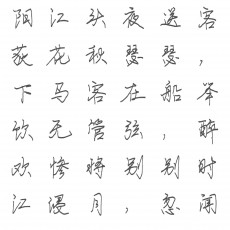 阳江头夜送客
荻花秋瑟瑟,
下马客在船举
饮无管弦,醉
欢惨将别别时
江浸月,忽闻